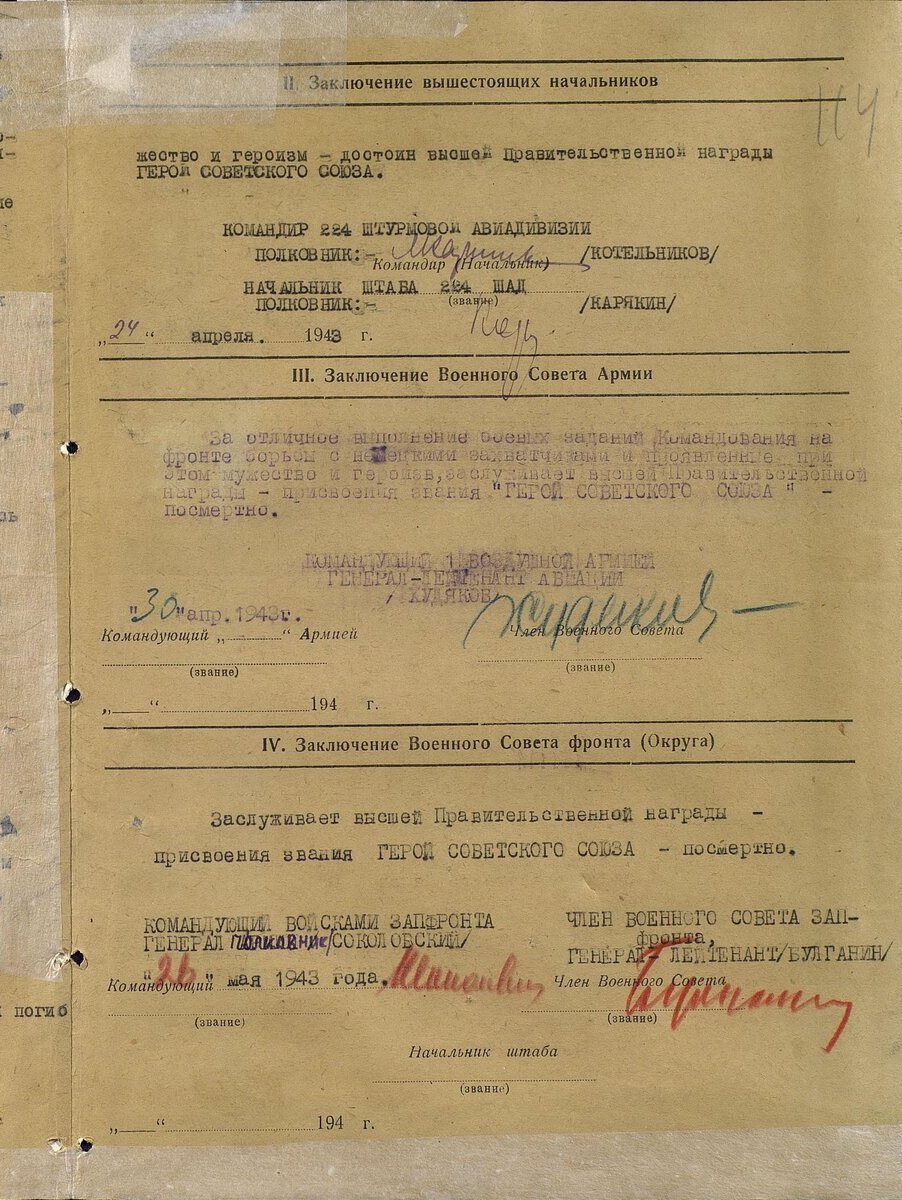 II. Заключение вышестоящих начальников
114
жество и героизм - достоин высшей Правительственной награды
ГЕРОЙ СОВЕТСКОГО СОЮЗА.
КОМАНДИР 224 ШТУРМОВОЙ АВИАДИВИЗИИ
ПОЛКОВНИК:- /КОТЕЛЬНИКОВ/
Командир (Начальник)
НАЧАЛЬНИК ШТАБА 224 ШАД
(звание)
ПОЛКОВНИК:- /КАРЯКИН/
„24“ апреля. 1943 г.
III. Заключение Военного Совета Армии
За отличное выполнение боевых заданий Командования на
фронте борьбы с немецкими захватчиками и проявленные при
этом мужество и героизв, заслуживает высшей Правительственной
награды - присвоения звания "ГЕРОЙ СОВЕТСКОГО СОЮЗА" -
посмертно.
КОМАНДУЮЩИЙ 1 ВОЗДУШНОЙ АРМИЕЙ
ГЕНЕРАЛ-ЛЕЙТЕНАНТ АВИАЦИИ
/ХУДЯКОВ/
"30" апр. 1943г.
Командующий „ “ Армией Член Военного Совета
(звание) (звание)
„ “ 194 г.
IV. Заключение Военного Совета фронта (Округа)
Заслуживает высшей Правительственной награды -
присвоения звания ГЕРОЙ СОВЕТСКОГО СОЮЗА - посмертно.
КОМАНДУЮЩИЙ ВОЙСКАМИ ЗАПФРОНТА ЧЛЕН ВОЕННОГО СОВЕТА ЗАП-
ГЕНЕРАЛ Полковник/СОКОЛОВСКИЙ/ фронта,
ГЕНЕРАЛ-ЛЕЙТЕНАНТ/БУЛГАНИН/
"26" мая 1943 года.
Командующий Член Военного Совета
(звание) (звание)
погиб
Начальник штаба
(звание)
„ “ 194 г.